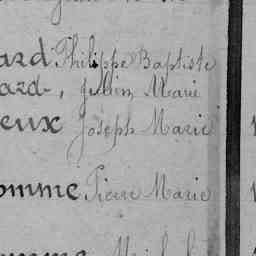 ard Philippe Baptiste
ard, Marie
eux Joseph Marie
omme Pierre Marie